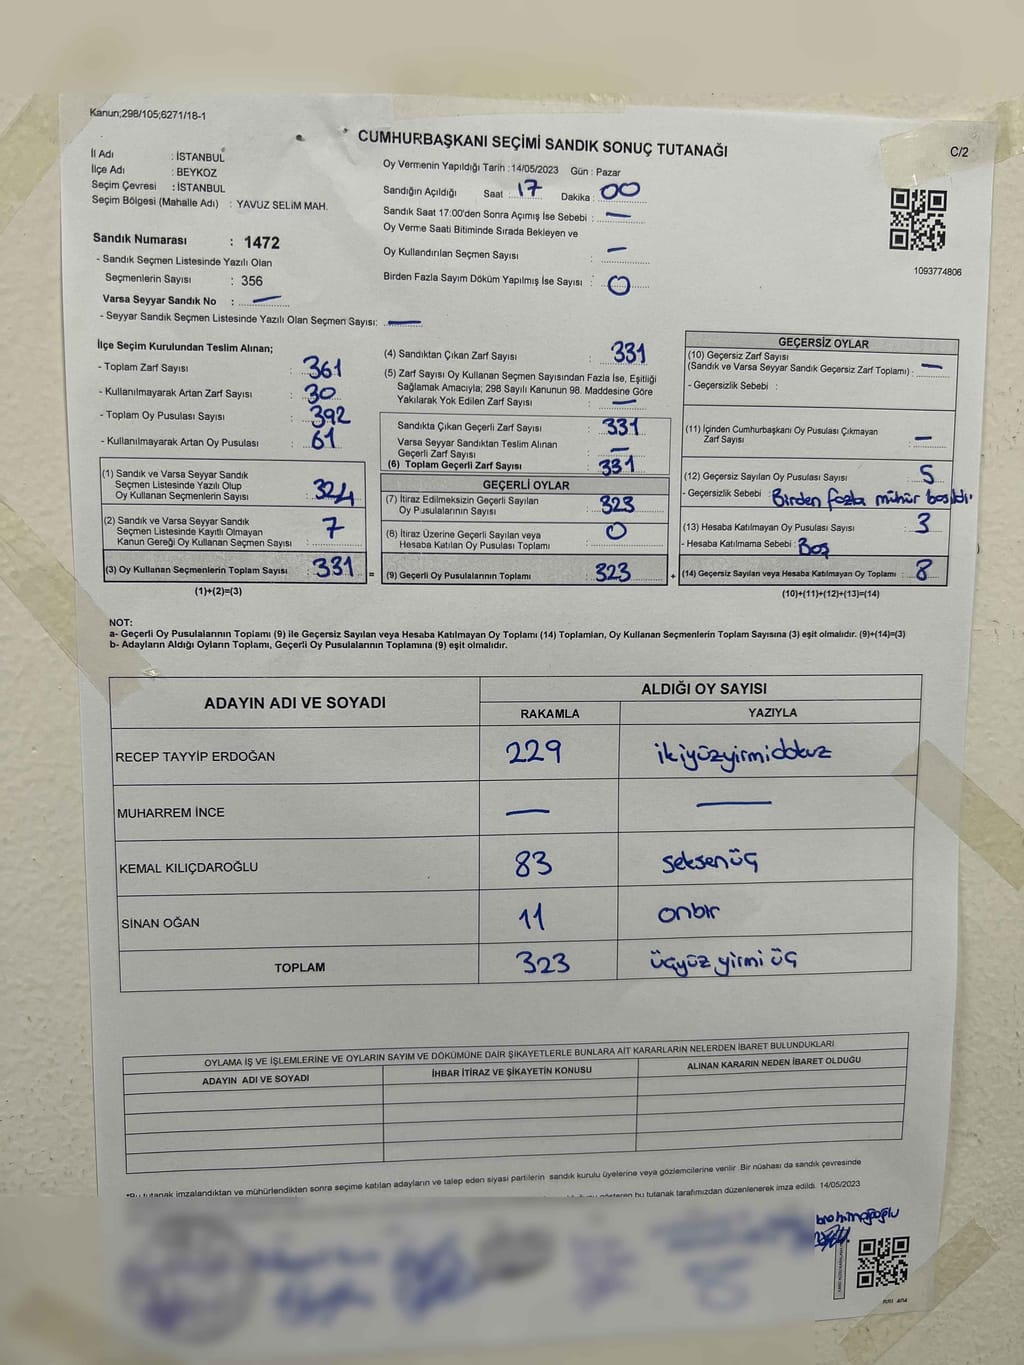 Kanun;298/105;6271/18-1
CUMHURBAŞKANI SEÇİMİ SANDIK SONUÇ TUTANAĞI
C/2
İl Adı : İSTANBUL
İlçe Adı : BEYKOZ
Seçim Çevresi : İSTANBUL
Seçim Bölgesi (Mahalle Adı) : YAVUZ SELİM MAH.
Sandık Numarası : 1472
- Sandık Seçmen Listesinde Yazılı Olan
Seçmenlerin Sayısı : 356
Varsa Seyyar Sandık No : —
- Seyyar Sandık Seçmen Listesinde Yazılı Olan Seçmen Sayısı: —
Oy Vermenin Yapıldığı Tarih : 14/05/2023 Gün : Pazar
Sandığın Açıldığı Saat : 17 Dakika : 00
Sandık Saat 17:00'den Sonra Açımış İse Sebebi : —
Oy Verme Saati Bitiminde Sırada Bekleyen ve
Oy Kullandırılan Seçmen Sayısı : —
Birden Fazla Sayım Döküm Yapılmış İse Sayısı : 0
1093774806
İlçe Seçim Kurulundan Teslim Alınan;
- Toplam Zarf Sayısı : 361
- Kullanılmayarak Artan Zarf Sayısı : 30
- Toplam Oy Pusulası Sayısı : 392
- Kullanılmayarak Artan Oy Pusulası : 61
(1) Sandık ve Varsa Seyyar Sandık
Seçmen Listesinde Yazılı Olup
Oy Kullanan Seçmenlerin Sayısı : 324
(2) Sandık ve Varsa Seyyar Sandık
Seçmen Listesinde Kayıtlı Olmayan
Kanun Gereği Oy Kullanan Seçmen Sayısı : 7
(3) Oy Kullanan Seçmenlerin Toplam Sayısı : 331 =
(1)+(2)=(3)
(4) Sandıktan Çıkan Zarf Sayısı : 331
(5) Zarf Sayısı Oy Kullanan Seçmen Sayısından Fazla İse, Eşitliği
Sağlamak Amacıyla; 298 Sayılı Kanunun 98. Maddesine Göre
Yakılarak Yok Edilen Zarf Sayısı : —
Sandıkta Çıkan Geçerli Zarf Sayısı : 331
Varsa Seyyar Sandıktan Teslim Alınan
Geçerli Zarf Sayısı : —
(6) Toplam Geçerli Zarf Sayısı : 331
GEÇERLİ OYLAR
(7) İtiraz Edilmeksizin Geçerli Sayılan
Oy Pusulalarının Sayısı : 323
(8) İtiraz Üzerine Geçerli Sayılan veya
Hesaba Katılan Oy Pusulası Toplamı : 0
(9) Geçerli Oy Pusulalarının Toplamı : 323 +
GEÇERSİZ OYLAR
(10) Geçersiz Zarf Sayısı
(Sandık ve Varsa Seyyar Sandık Geçersiz Zarf Toplamı) : —
- Geçersizlik Sebebi :
(11) İçinden Cumhurbaşkanı Oy Pusulası Çıkmayan
Zarf Sayısı : —
(12) Geçersiz Sayılan Oy Pusulası Sayısı : 5
- Geçersizlik Sebebi : Birden fazla mühür basıldı.
(13) Hesaba Katılmayan Oy Pusulası Sayısı : 3
- Hesaba Katılmama Sebebi : Boş
(14) Geçersiz Sayılan veya Hesaba Katılmayan Oy Toplamı : 8
(10)+(11)+(12)+(13)=(14)
NOT:
a- Geçerli Oy Pusulalarının Toplamı (9) ile Geçersiz Sayılan veya Hesaba Katılmayan Oy Toplamı (14) Toplamları, Oy Kullanan Seçmenlerin Toplam Sayısına (3) eşit olmalıdır. (9)+(14)=(3)
b- Adayların Aldığı Oyların Toplamı, Geçerli Oy Pusulalarının Toplamına (9) eşit olmalıdır.
ADAYIN ADI VE SOYADI ALDIĞI OY SAYISI
RAKAMLA YAZIYLA
RECEP TAYYİP ERDOĞAN 229 ikiyüzyirmidokuz
MUHARREM İNCE — —
KEMAL KILIÇDAROĞLU 83 seksenüç
SİNAN OĞAN 11 onbir
TOPLAM 323 üçyüz yirmi üç
OYLAMA İŞ VE İŞLEMLERİNE VE OYLARIN SAYIM VE DÖKÜMÜNE DAİR ŞİKAYETLERLE BUNLARA AİT KARARLARIN NELERDEN İBARET BULUNDUKLARI
ADAYIN ADI VE SOYADI İHBAR İTİRAZ VE ŞİKAYETİN KONUSU ALINAN KARARIN NEDEN İBARET OLDUĞU
*Bu tutanak imzalandıktan ve mühürlendikten sonra seçime katılan adayların ve talep eden siyasi partilerin sandık kurulu üyelerine veya gözlemcilerine verilir. Bir nüshası da sandık çevresinde
gösteren bu tutanak tarafımızdan düzenlenerek imza edildi. 14/05/2023